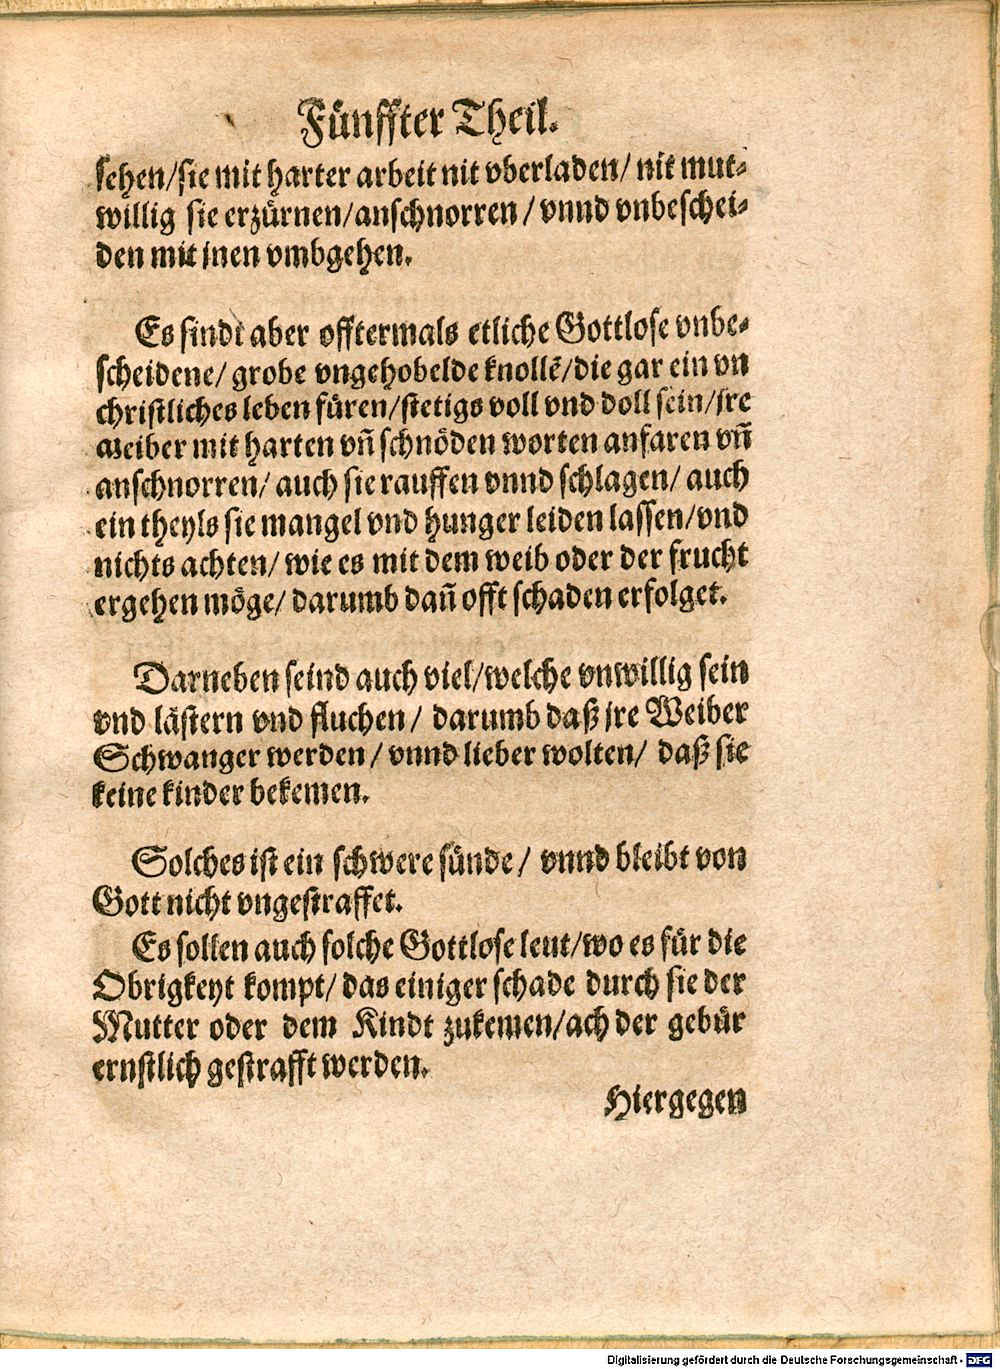 Fünffter Theil.
sehen/sie mit harter arbeit nit vberladen/ nit mut⸗
willig sie erzürnen/anschnorren / vnnd vnbeschei⸗
den mit jnen vmbgehen.
Es sindt aber offtermals etliche Gottlose vnbe⸗
scheidene/ grobe vngehobelde knollẽ/die gar ein vn
christliches leben füren/stetigs voll vnd doll sein/jre
weiber mit harten vñ schnöden worten anfaren vñ
anschnorren/ auch sie rauffen vnnd schlagen/ auch
ein theyls sie mangel vnd hunger leiden lassen/vnd
nichts achten/ wie es mit dem weib oder der frucht
ergehen möge/ darumb dañ offt schaden erfolget.
Darneben seind auch viel/welche vnwillig sein
vnd lästern vnd fluchen/ darumb daß jre Weiber
Schwanger werden / vnnd lieber wolten/ daß sie
keine kinder bekemen.
Solches ist ein schwere sünde/ vnnd bleibt von
Gott nicht vngestraffet.
Es sollen auch solche Gottlose leut/wo es für die
Obrigkeyt kompt/ das einiger schade durch sie der
Mutter oder dem Kindt zukemen/ach der gebür
ernstlich gestrafft werden.
Hiergegen
Digitalisierung gefördert durch die Deutsche Forschungsgemeinschaft - DFG